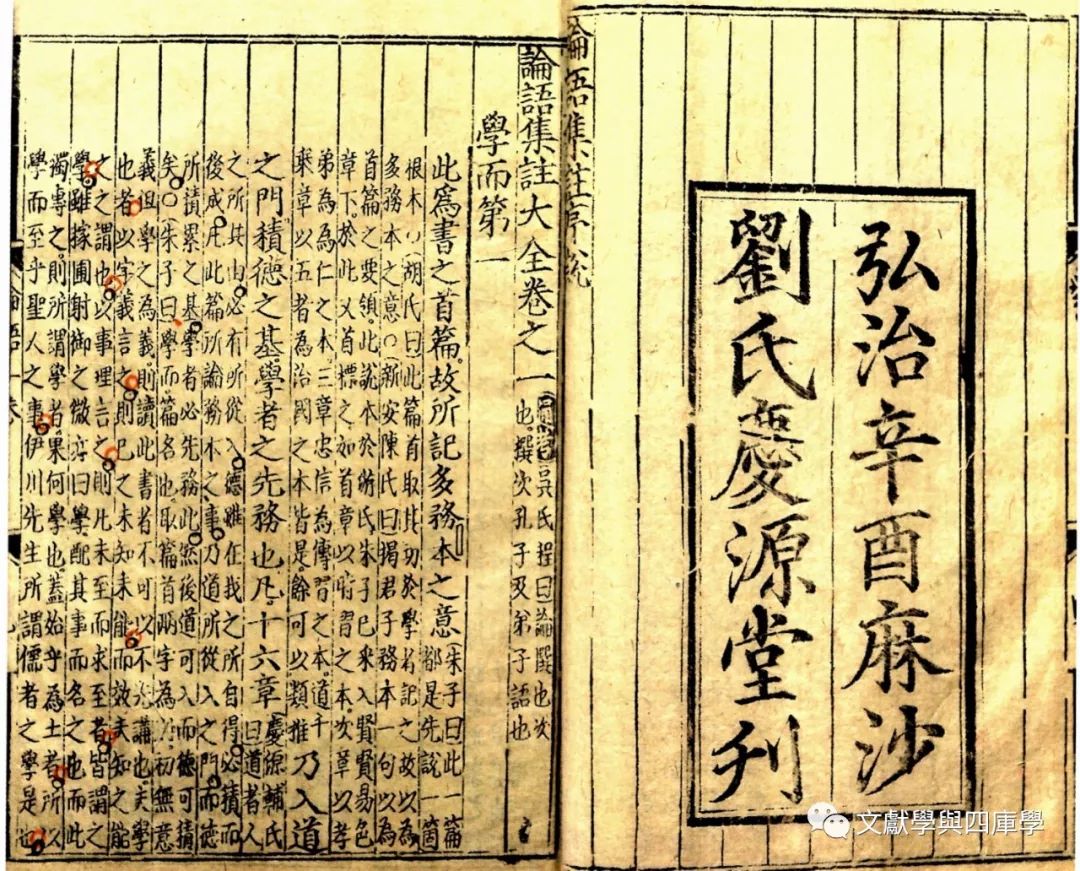 弘治辛酉麻沙
劉氏慶源堂刊
論語集註序說
論語集註大全卷之一
氏程曰論撰也次
也撰次孔子及弟子語也
學而第一
此爲書之首篇故所記多務本之意
朱子曰此一篇
都是先說一箇
根本○胡氏曰此篇首取其切於學者記之故以為
多務本之意○新安陳氏曰揭君子務本一句以為
首篇之要領此說本於游氏朱子已采入賢賢易色
章下於此又首標之如首章以時習之本次章以孝
弟為為仁之本三章忠信為傳習之本道千
乘章以五者為治國之本皆是餘可以類推
乃入道
之門積德之基學者之先務也凡十六章
慶源輔氏
曰道者人
之所共由必有所從入德雖在我之所自得必積而
後成凡此篇所論務本之事乃道所從入之門而德
所積累之基學者必先務此然後道可入而德可積
矣○朱子曰學而篇名也取篇首兩字為初無意
義但學之為義則讀此書者不可以不先講也夫學
也者以字義言之則己之未知未能而效夫知之能
之之謂也以事理言之則凡未至而求至者皆謂之
學雖稼圃射御之微亦曰學配其事而名之也而此
獨專之則所謂學者果何學也蓋始乎為士者所以
學而至乎聖人之事伊川先生所謂儒者之學是也
文獻學與四庫學